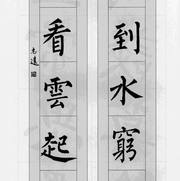 到水窮
看雲起
志遠